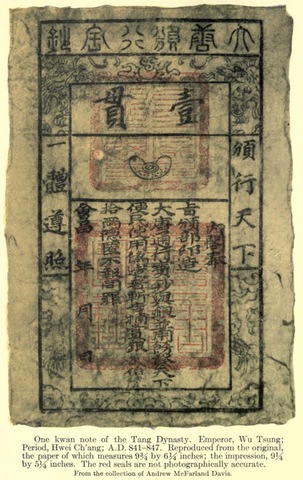 大唐頒行寶鈔
壹貫
頒行天下
一體遵照
旨頒印造
大唐通行寶鈔與
天下
便民使用
拾兩隱匿不報同罪
會昌 年 月 日
One kwan note of the Tang Dynasty. Emperor, Wu Tsung;
Period, Hwei Ch'ang; A.D. 841–847. Reproduced from the original,
the paper of which measures 9¾ by 6¼ inches; the impression, 9¼
by 5¼ inches. The red seals are not photographically accurate.
From the collection of Andrew McFarland Davis.